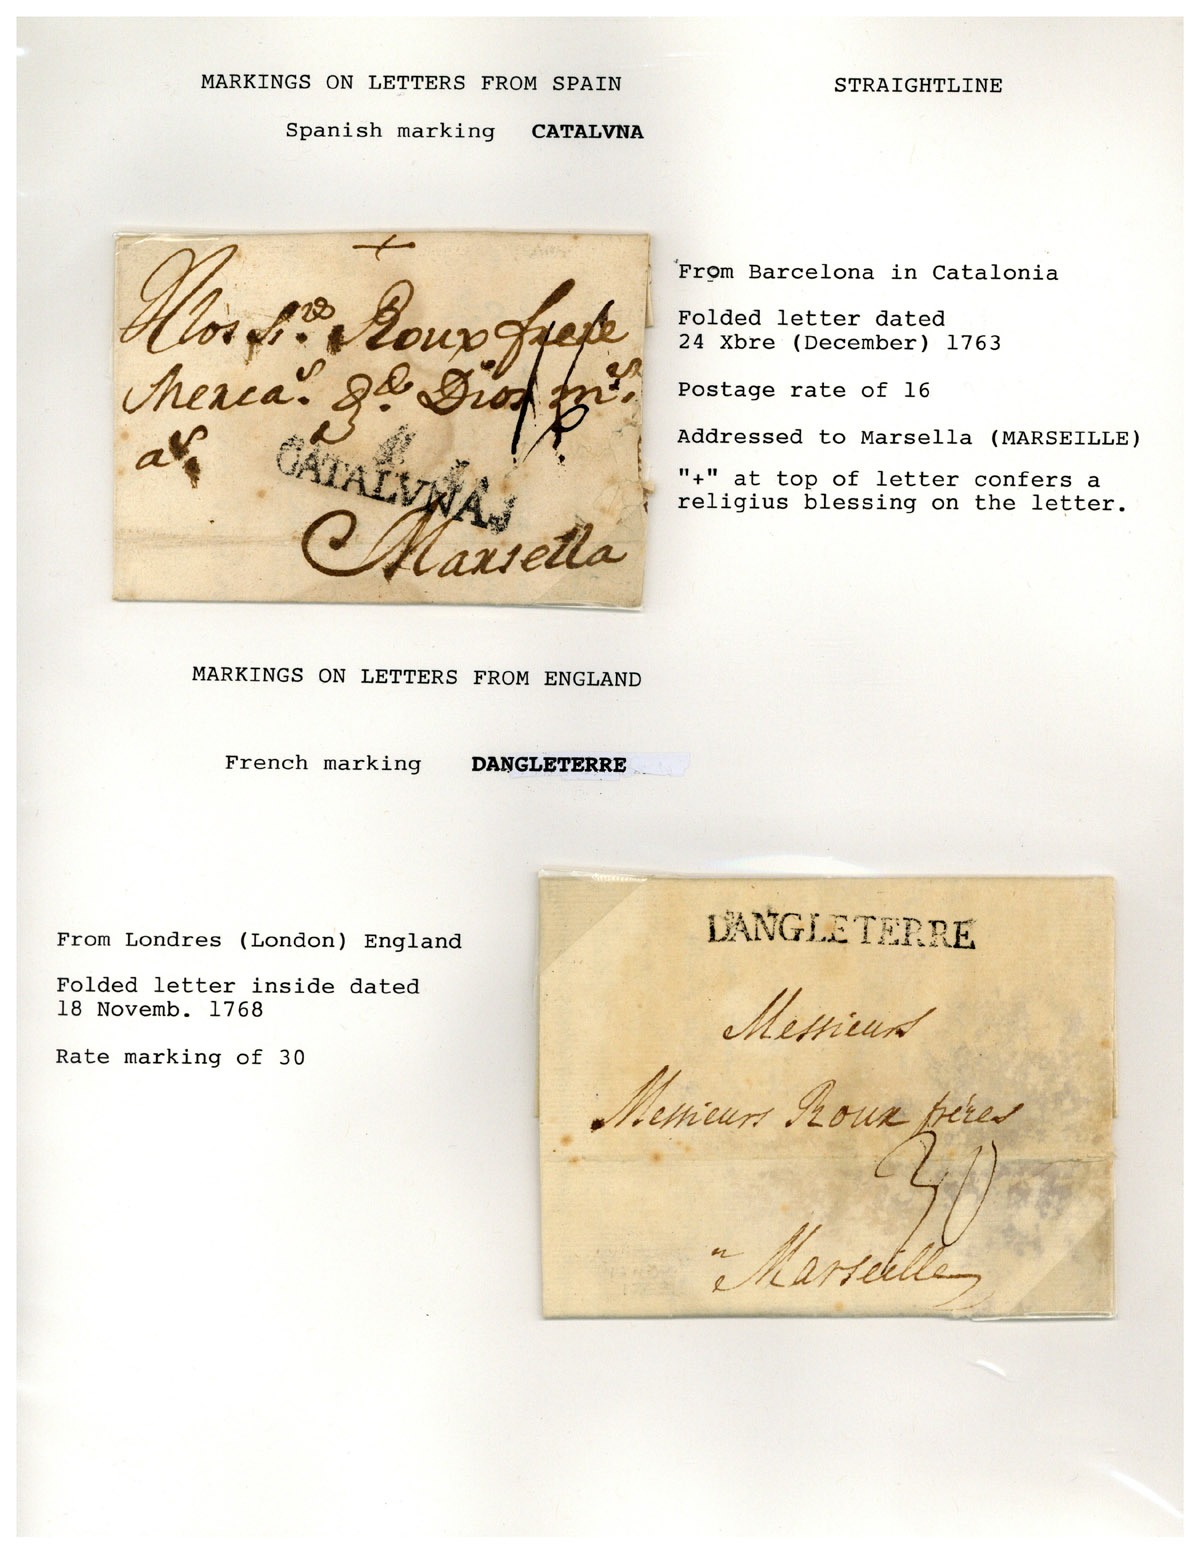 MARKINGS ON LETTERS FROM SPAIN STRAIGHTLINE
Spanish marking CATALVNA
+
Roux frere
Merca.s Dios m.s
a.s
16
CATALVNA
Marsella
From Barcelona in Catalonia
Folded letter dated
24 Xbre (December) 1763
Postage rate of 16
Addressed to Marsella (MARSEILLE)
"+" at top of letter confers a
religius blessing on the letter.
MARKINGS ON LETTERS FROM ENGLAND
French marking DANGLETERRE
From Londres (London) England
Folded letter inside dated
18 Novemb. 1768
Rate marking of 30
DANGLETERRE
Messieurs
Messieurs Roux frères
30
a Marseille